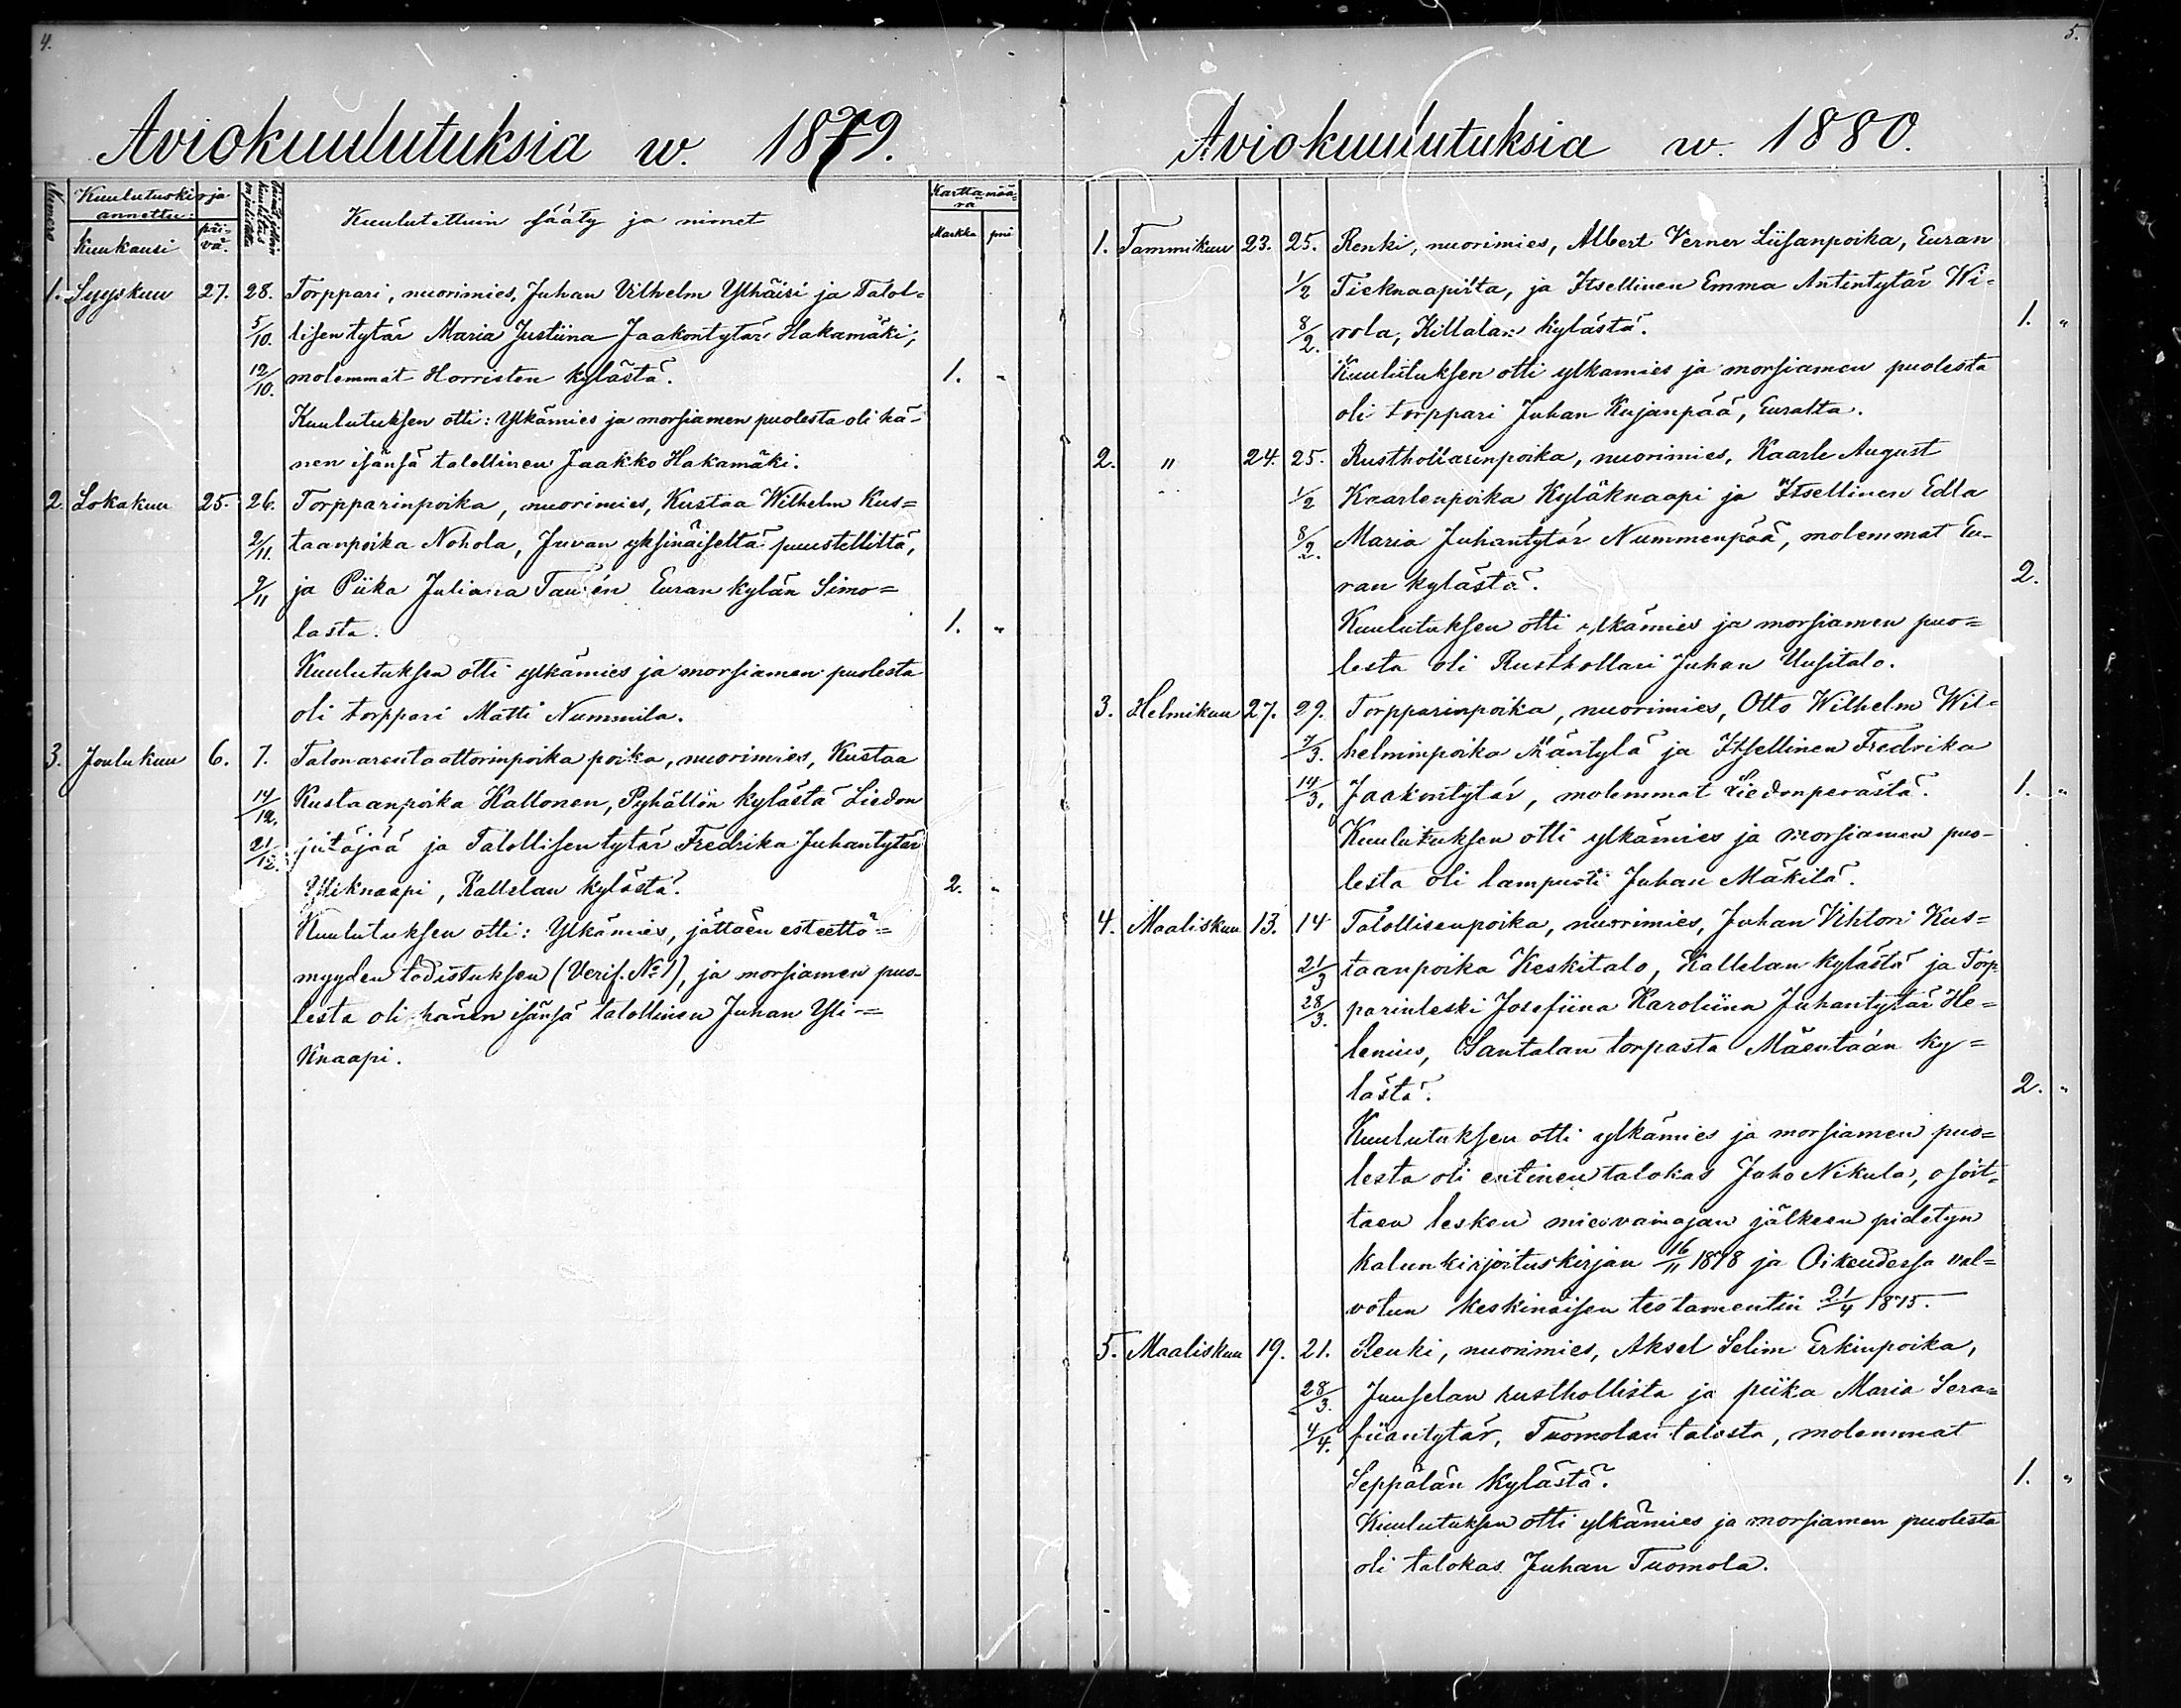 4.
Aviokuulutuksia w. 1879.
Numero
Kuulutuskirja annettu:
Kuukausi
päi-
vä.
Kuulutettuin sääty ja nimet
Karttamää-
rä
Markka
pni
1. Syyskuu 27. 28. Torppari, nuorimies, Juhan Vilhelm Ylhäisi ja Talol=
5/10. lisen tytär Maria Justiina Jaakontytär Hakamäki,
12/10. molemmat Horristen kylästä. 1. "
Kuulutuksen otti: Ylkämies ja morsiamen puolesta oli hä-
nen isänsä talollinen Jaakko Hakamäki.
2. Lokakuu 25. 26. Torpparinpoika, nuorimies, Kustaa Wilhelm Kus=
2/11. taanpoika Nohola, Juvan yksinäiseltä puustelliltä,
9/11 ja Piika Juliana Taurén Euran kylän Simo=
lasta. 1. "
Kuulutuksen otti ylkämies ja morsiamen puolesta
oli torppari Matti Nummila.
3. Joulukuu 6. 7. Talonarentaattorinpoika poika, nuorimies, Kustaa
14/12. Kustaanpoika Kallonen, Pyhällön kylästä Liedon
21/12. pitäjää ja Talollisentytär Fredrika Juhantytär
Yliknaapi, Kallelan kylästä. 2. "
Kuulutuksen otti: Ylkämies, jättäen esteettö=
myyden todistuksen (Verif. No 1), ja morsiamen puo-
lesta oli hänen isänsä talollinen Juhan Yli-=
Knaapi.
5.
Aviokuulutuksia w. 1880.
1. Tammikuu 23. 25. Renki, nuorimies, Albert Verner Liisanpoika, Euran
1/2 Tieknaapilta, ja Itsellinen Emma Antintytär Wi-
8/2. rola, Killalan kylästä. 1. "
Kuulutuksen otti ylkämies ja morsiamen puolesta
oli torppari Juhan Kujanpää, Euralta.
2. " 24. 25. Rusthollarinpoika, nuorimies, Kaarle August
1/2 Kaarlenpoika Kyläknaapi ja Itsellinen Edla
8/2. Maria Juhantytär Nummenpää, molemmat Eu-
ran kylästä. 2.
Kuulutuksen otti ylkämies ja morsiamen puo=
lesta oli Rusthollari Juhan Uusitalo.
3. Helmikuu 27. 29. Torpparinpoika, nuorimies, Otto Wilhelm Wil-
7/3. helminpoika Mäntylä ja Itsellinen Fredrika
14/3. Jaakontytär, molemmat Liedonperästä. 1. "
Kuulutuksen otti ylkämies ja morsiamen puo-
lesta oli lampuoti Juhan Mäkilä.
4. Maaliskuu 13. 14 Talollisenpoika, nuorimies, Juhan Vihtori Kus=
21/3 taanpoika Keskitalo, Kallelan kylästä ja Torp
28/3. parinleski Josefiina Karoliina Juhantytär He=
lenius, Santalan torpasta Mäentään ky=
lästä. 2. "
Kuulutuksen otti ylkämies ja morsiamen puo=
lesta oli entinen talokas Juho Nikula, osoit=
taen lesken miesvainajan jälkeen pidetyn
kalunkirjoituskirjan 16/11 1878 ja Oikeudessa val=
votun keskinäisen testamentin 21/4 1875.
5. Maaliskuu 19. 21. Renki, nuorimies, Aksel Selim Erkinpoika,
28/3. Juuselan rusthollista ja piika Maria Sera=
4/4. fiiantytär, Tuomolan talosta, molemmat
Seppälän kylästä. 1. "
Kuulutuksen otti ylkämies ja morsiamen puolesta
oli talokas Juhan Tuomola.